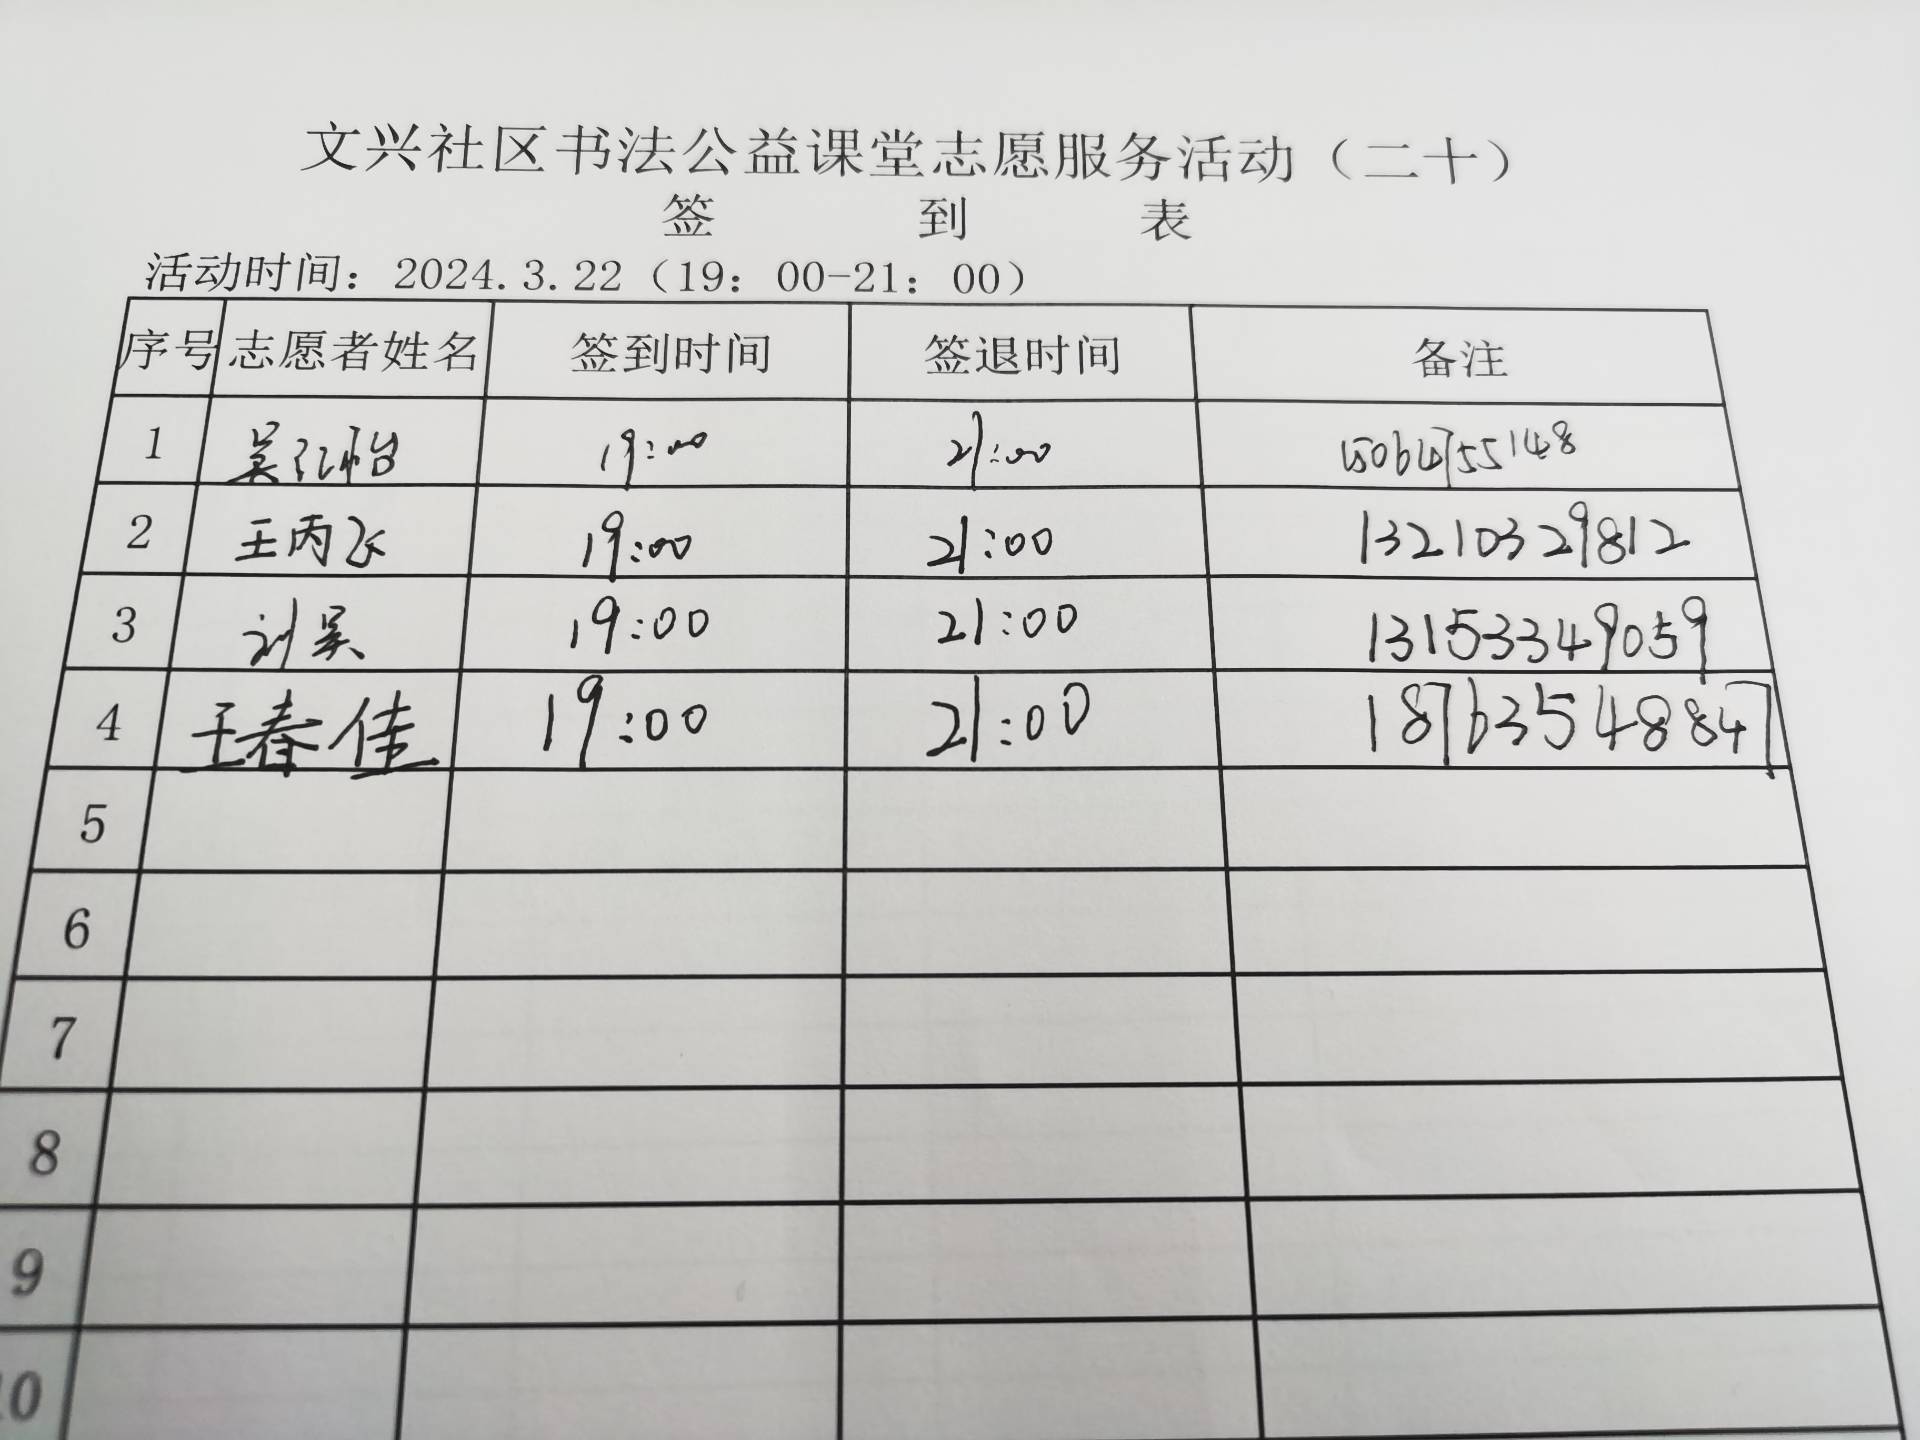 文兴社区书法公益课堂志愿服务活动（二十）
签 到 表
活动时间：2024.3.22（19：00-21：00）
序号 志愿者姓名 签到时间 签退时间 备注
1 吴红怡 19:00 21:00 15064755148
2 王丙飞 19:00 21:00 13210329812
3 刘昊 19:00 21:00 13153349059
4 王春佳 19:00 21:00 18763548847
5
6
7
8
9
10